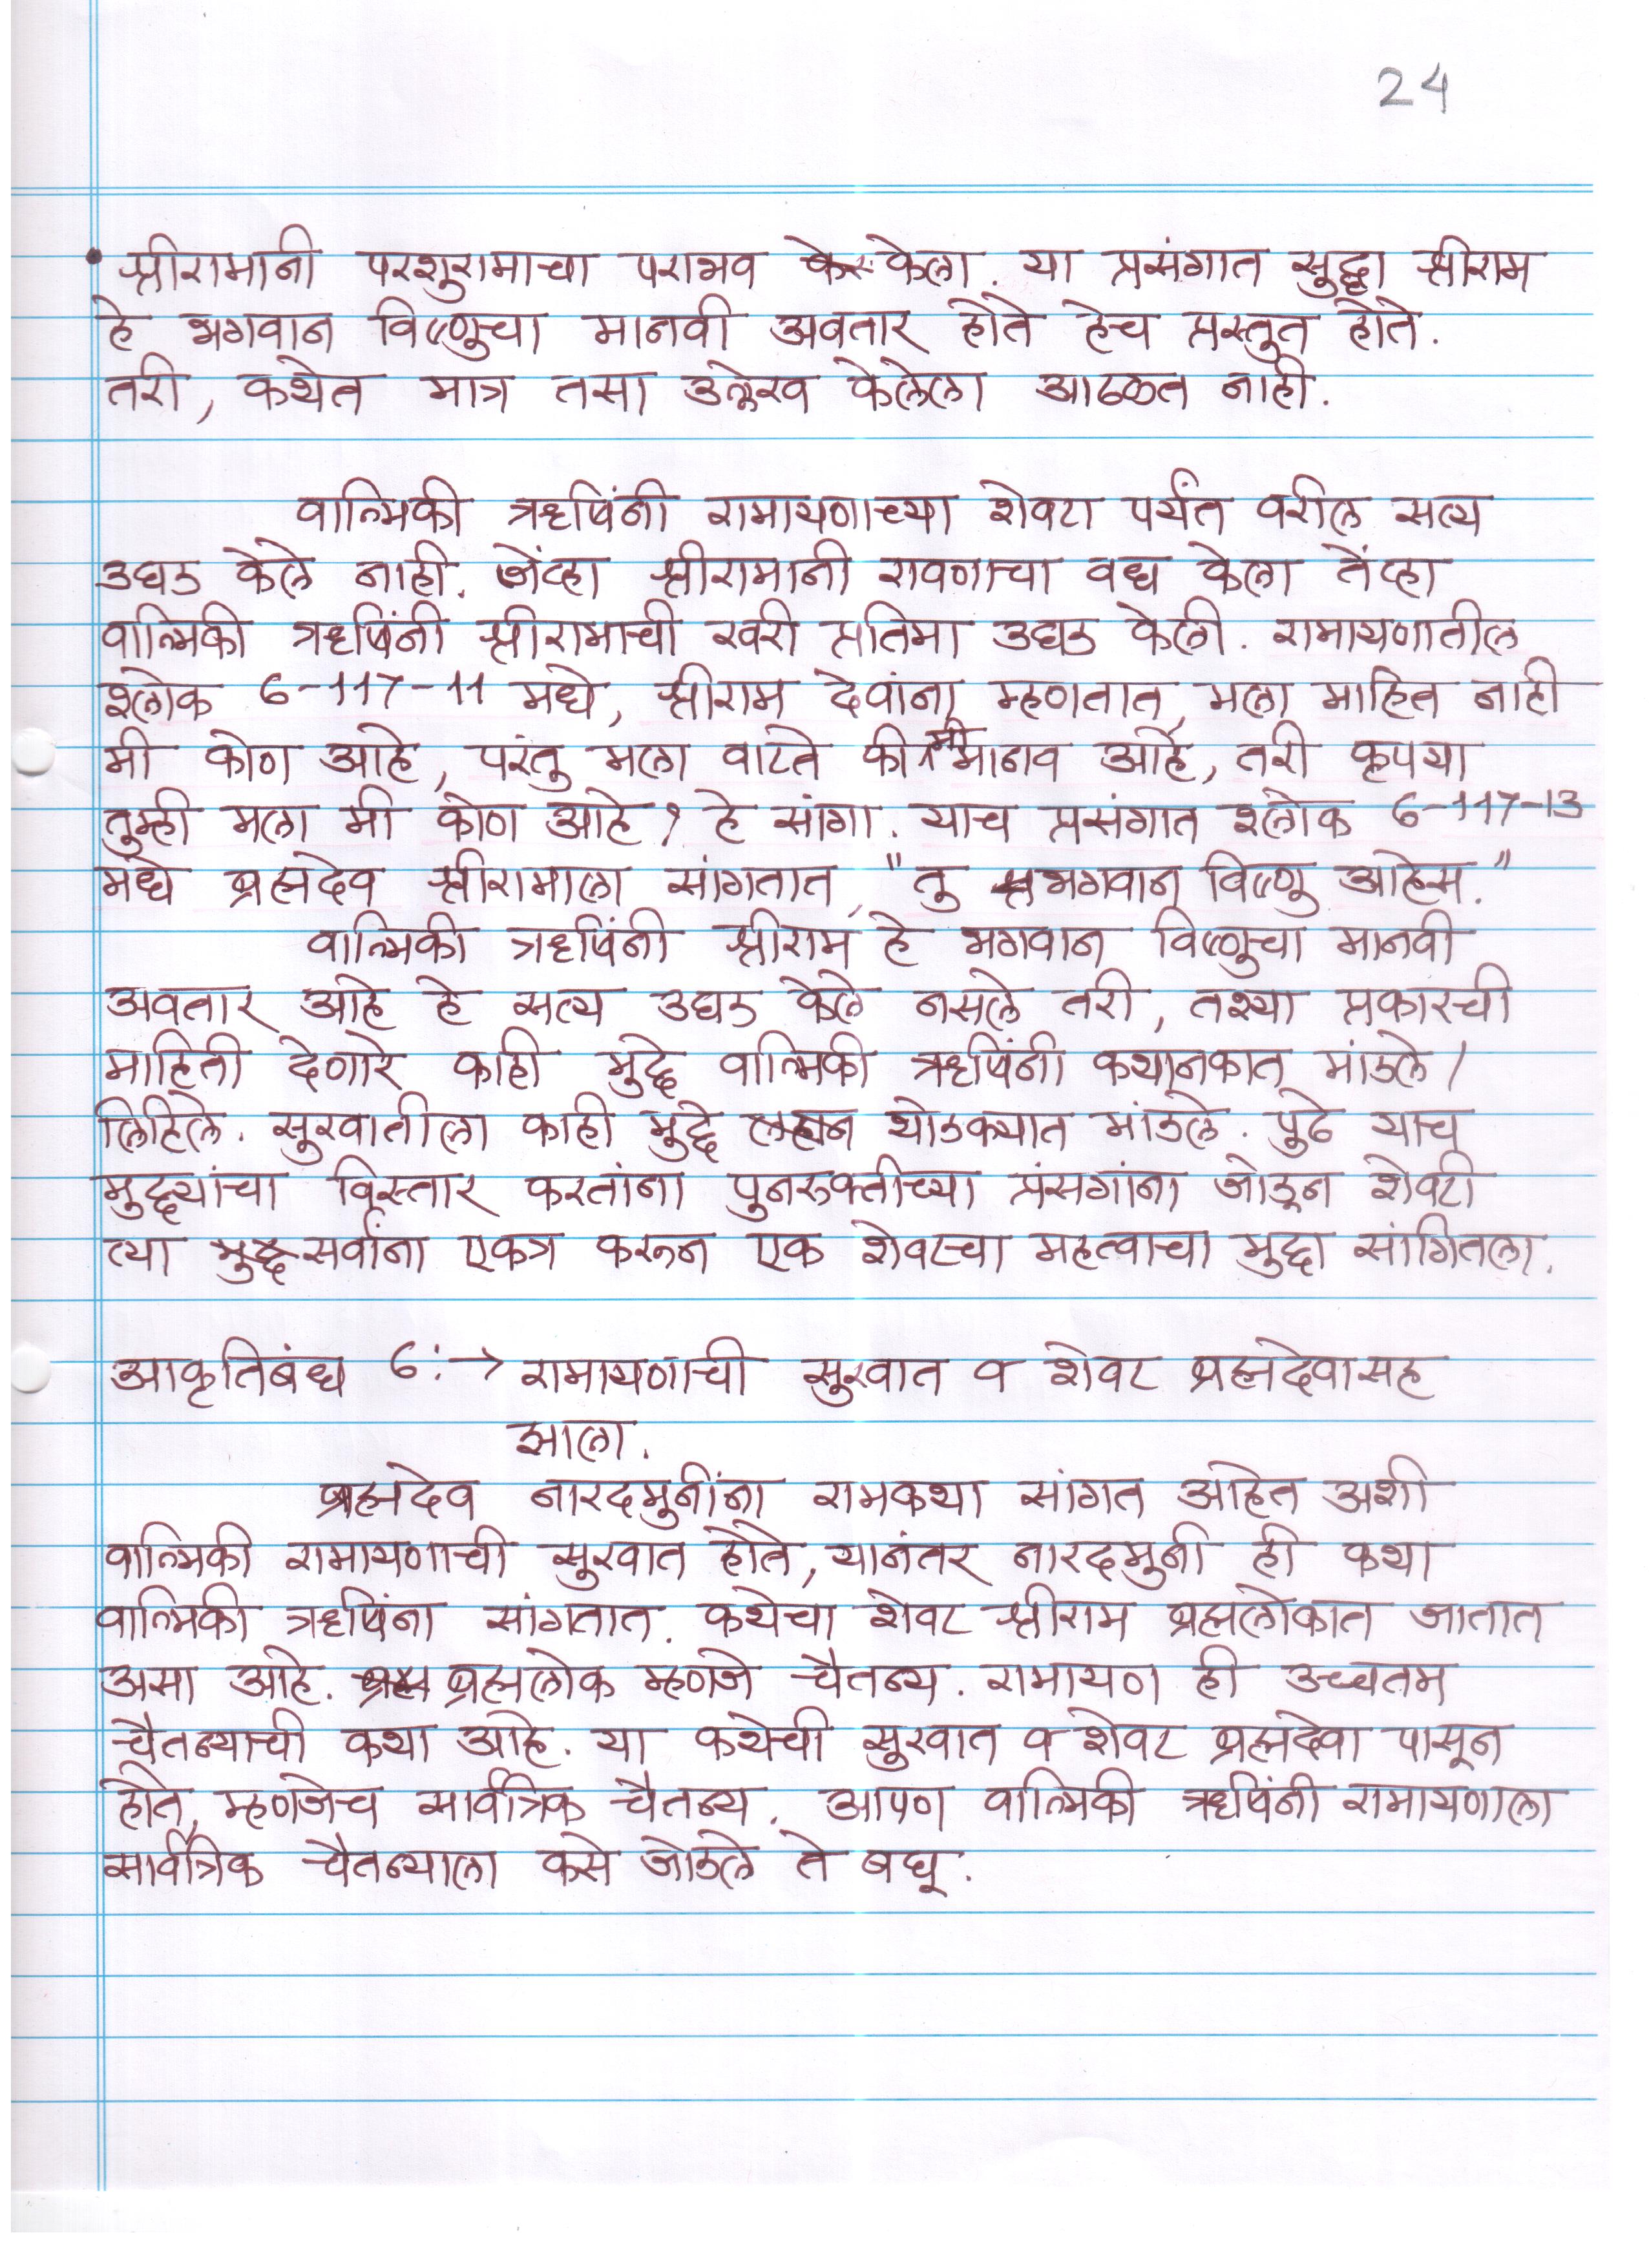 24
• श्रीरामानी परशुरामाचा पराभव केला. या प्रसंगात सुद्धा श्रीराम
हे भगवान विष्णुचा मानवी अवतार होते हेच प्रस्तुत होते.
तरी, कथेत मात्र तसा उल्लेख केलेला आढळत नाही.
वाल्मिकी ऋषिंनी रामायणाच्या शेवटा पर्यंत वरील सत्य
उघड केले नाही. जेंव्हा श्रीरामानी रावणाचा वध केला तेंव्हा
वाल्मिकी ऋषिंनी श्रीरामाची खरी प्रतिमा उघड केली. रामायणातील
श्लोक 6-117-11 मधे, श्रीराम देवांना म्हणतात, मला माहित नाही
मी कोण आहे, परंतु मला वाटते की मी मानव आहे, तरी कृपया
तुम्ही मला मी कोण आहे? हे सांगा. याच प्रसंगात श्लोक 6-117-13
मधे ब्रह्मदेव श्रीरामाला सांगतात, "तु भगवान विष्णु आहेस."
वाल्मिकी ऋषिंनी श्रीराम हे भगवान विष्णुचा मानवी
अवतार आहे हे सत्य उघड केले नसले तरी, तश्या प्रकारची
माहिती देणारे काही मुद्दे वाल्मिकी ऋषिंनी कथानकात मांडले /
लिहिले. सुरवातीला काही मुद्दे लहान थोडक्यात मांडले. पुढे याच
मुद्द्यांचा विस्तार करतांना पुनरुक्तीच्या प्रंसगांना जोडून शेवटी
त्या सर्वांना एकत्र करून एक शेवटचा महत्वाचा मुद्दा सांगितला.
आकृतिबंध 6:→ रामायणाची सुरवात व शेवट ब्रह्मदेवासह
झाला.
ब्रह्मदेव नारदमुनींना रामकथा सांगत आहेत अशी
वाल्मिकी रामायणाची सुरवात होते, यानंतर नारदमुनी ही कथा
वाल्मिकी ऋषिंना सांगतात. कथेचा शेवट श्रीराम ब्रह्मलोकात जातात
असा आहे. ब्रह्मलोक म्हणजे चैतन्य. रामायण ही उच्चतम
चैतन्याची कथा आहे. या कथेची सुरवात व शेवट ब्रह्मदेवा पासून
होते, म्हणजेच सार्वत्रिक चैतन्य. आपण वाल्मिकी ऋषिंनी रामायणाला
सार्वत्रिक चैतन्याला कसे जोडले ते बघू.